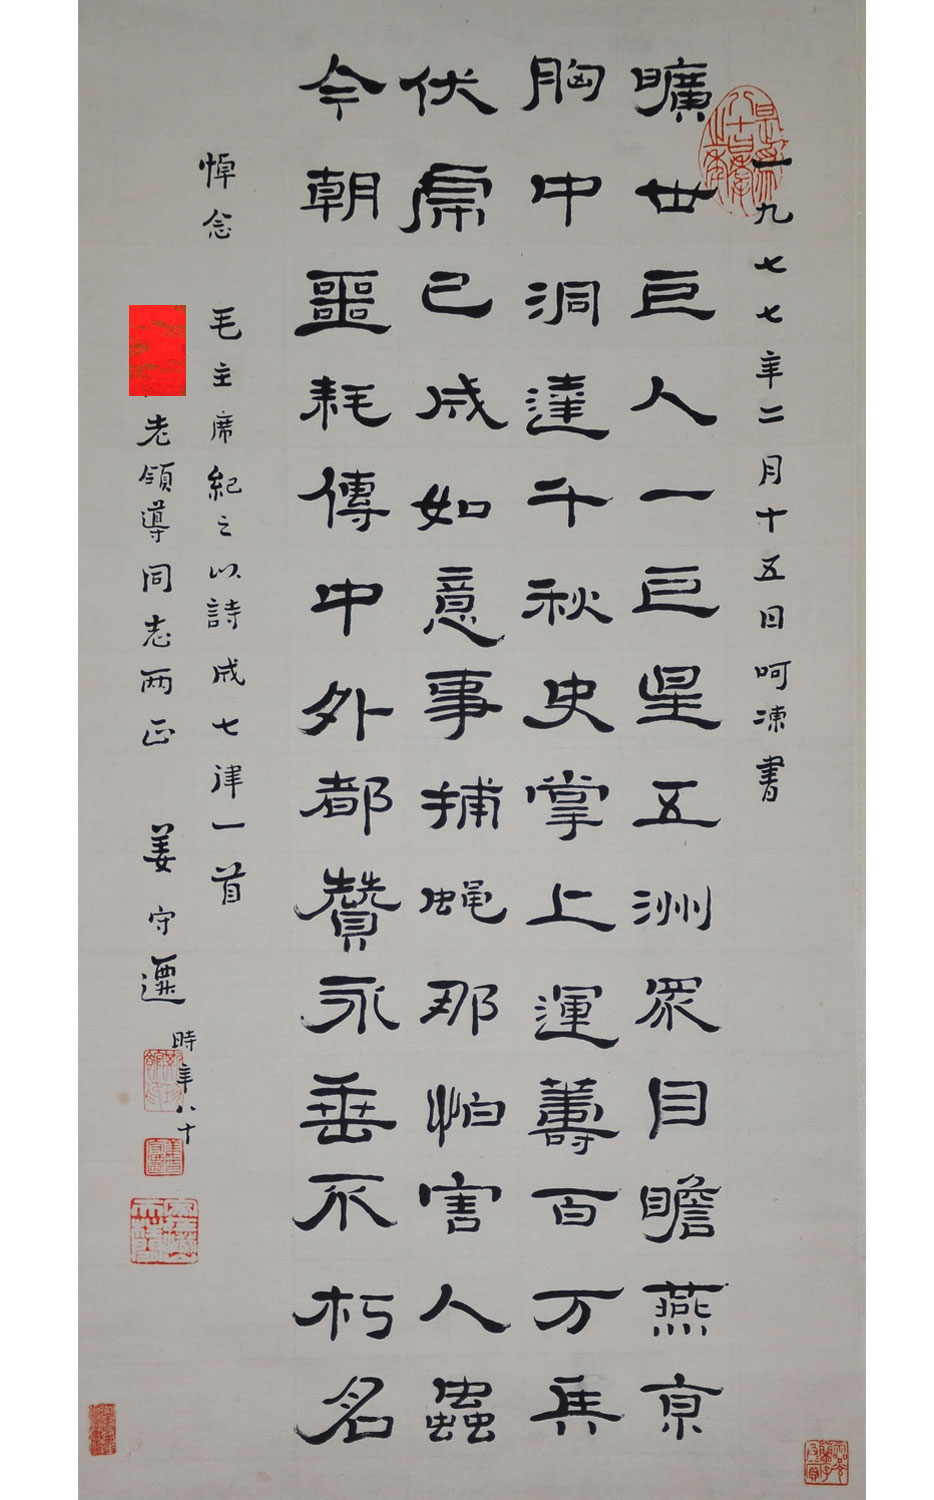 曠世巨人一巨星五洲眾目瞻燕京
胸中洞達千秋史掌上運籌百万兵
伏虎已成如意事捕蝇那怕害人蟲
今朝噩耗傳中外都贊永垂不朽名
悼念 毛主席紀之以詩成七律一首
老領導同志两正 姜守遷 時年八十
一九七七年二月十五日呵凍書